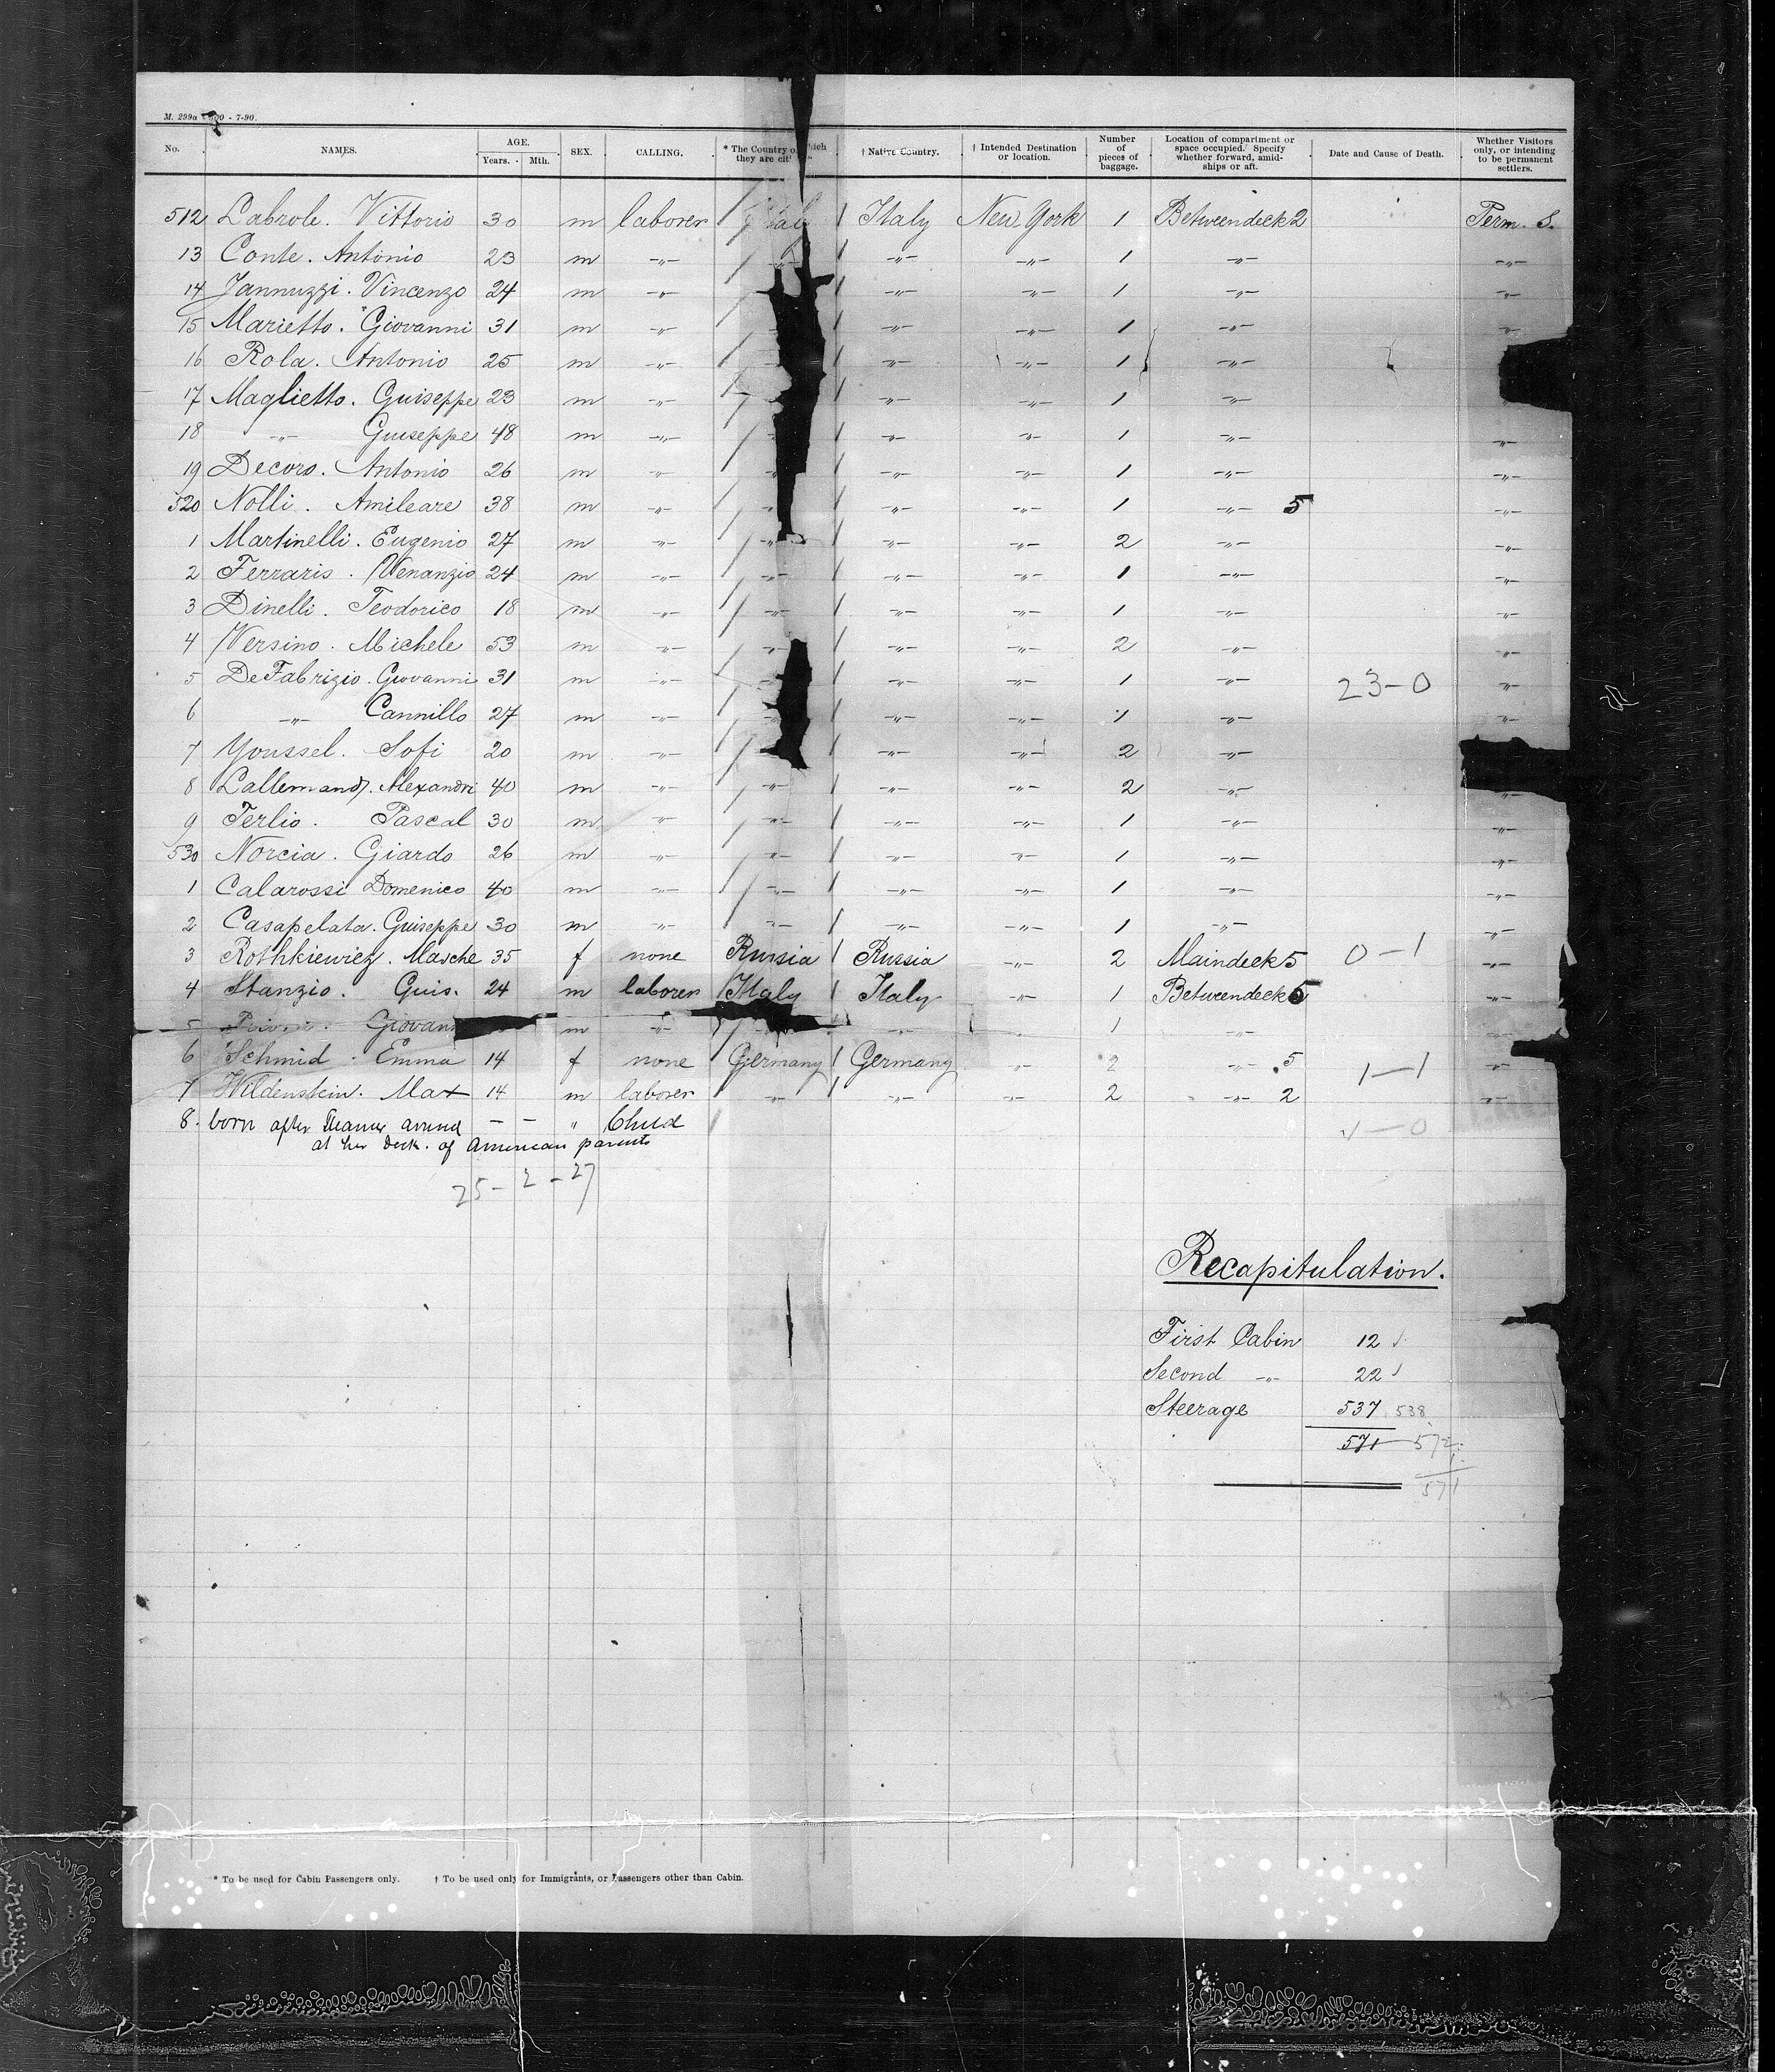 M. 299a 7-90.
No. NAMES. AGE. Years. Mth. SEX. CALLING. * The Country of which they are † Native Country. † Intended Destination or location. Number of pieces of baggage. Location of compartment or space occupied. Specify whether forward, amidships or aft. Date and Cause of Death. Whether Visitors only, or intending to be permanent settlers.
512 Labrole. Vittorio 30 m laborer Italy Italy New York 1 Betweendeck 2 Perm. S.
13 Conte. Antonio 23 m -"- -"- -"- -"- 1 -"- -"-
14 Jannuzzi. Vincenzo 24 m -"- -"- -"- 1 -"- -"-
15 Marietto. Giovanni 31 m -"- -"- -"- 1 -"- -"-
16 Rola. Antonio 25 m -"- -"- -"- 1 -"-
17 Maglietto. Guiseppe 23 m -"- -"- -"- 1 -"-
18 -"- Guiseppe 48 m -"- -"- -"- 1 -"- -"-
19 Decoro. Antonio 26 m -"- -"- -"- 1 -"- -"-
520 Nolli. Amileare 38 m -"- -"- -"- 1 -"- 5 -"-
1 Martinelli. Eugenio 27 m -"- -"- -"- -"- 2 -"- -"-
2 Ferraris. Venanzio 24 m -"- -"- -"- -"- 1 -"- -"-
3 Dinelli. Teodorico 18 m -"- -"- -"- -"- 1 -"- -"-
4 Versino. Michele 53 m -"- -"- -"- -"- 2 -"- -"-
5 DeFabrizio. Giovanni 31 m -"- -"- -"- -"- 1 -"- 23-0 -"-
6 -"- Cannillo 27 m -"- -"- -"- -"- 1 -"- -"-
7 Youssel. Sofi 20 m -"- -"- -"- -"- 2 -"-
8 Lallemand. Alexandri 40 m -"- -"- -"- -"- 2 -"- -"-
9 Terlio. Pascal 30 m -"- -"- -"- -"- 1 -"- -"-
530 Norcia. Giardo 26 m -"- -"- -"- -"- 1 -"- -"-
1 Calarossi Domenico 40 m -"- -"- -"- -"- 1 -"- -"-
2 Casapelata. Guiseppe 30 m -"- -"- -"- -"- 1 -"- -"-
3 Rothkiewiez. Masche 35 f none Russia Russia -"- 2 Maindeck 5 0-1 -"-
4 Stanzio. Guis. 24 m laborer Italy Italy -"- 1 Betweendeck 5 -"-
5 Giovann m -"- -"- -"- 1 -"- -"-
6 Schmid. Emma 14 f none Germany Germany -"- 2 -"- 5 1-1 -"-
7 Wildenstein. Max 14 m laborer -"- -"- -"- 2 -"- 2 -"-
8. born after Steamer arrived - - " Child -0
at her Dock. of American parents
25-2-27
Recapitulation.
First Cabin 12
Second -"- 22
Steerage 537 538
571 572
1
571
* To be used for Cabin Passengers only. † To be used only for Immigrants, or Passengers other than Cabin.